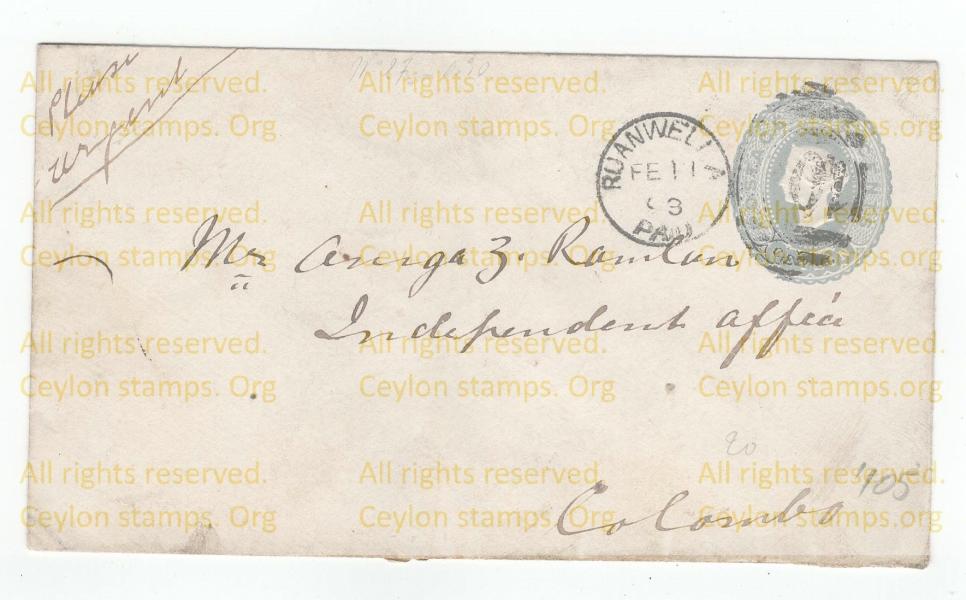 Please
urgent
All rights reserved. All rights reserved. All rights reserved.
Ceylon stamps. Org Ceylon stamps. Org Ceylon stamps.org
RUANWELLA
FE 11
93
PAID
All rights reserved. All rights reserved. All rights reserved.
Ceylon stamps. Org Ceylon stamps. Org Ceylon stamps.org
Mr
Independent office
All rights reserved. All rights reserved. All rights reserved.
Ceylon stamps. Org Ceylon stamps. Org Ceylon stamps.org
20
All rights reserved. All rights reserved. All rights reserved.
Ceylon stamps. Org Ceylon stamps. Org Ceylon stamps.org
1905
Colombo